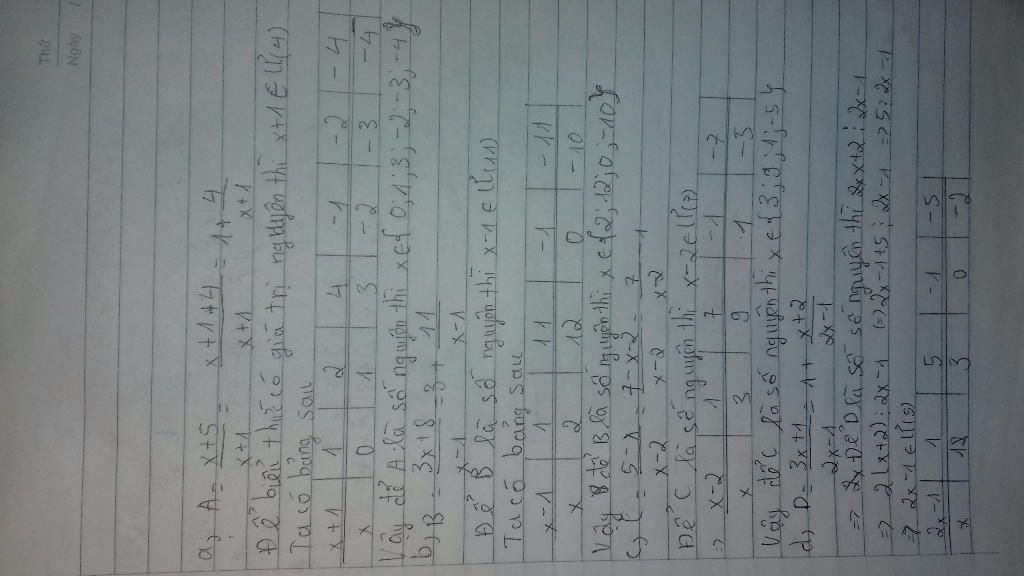 Thứ
Ngày /
a, A = x+5/x+1 = x+1+4/x+1 = 1 + 4/x+1
Để biểu thức có giá trị nguyên thì x+1 ∈ Ư(4)
Ta có bảng sau
x+1 1 2 4 -1 -2 -4
x 0 1 3 -2 -3 -4
Vậy để A là số nguyên thì x ∈ { 0; 1; 3; -2; -3; -4 }
b, B = 3x+8/x-1 = 3 + 11/x-1
Để B là số nguyên thì x-1 ∈ Ư(11)
Ta có bảng sau
x-1 1 11 -1 -11
x 2 12 0 -10
Vậy để B là số nguyên thì x ∈ { 2; 12; 0; -10 }
c, C = 5-x/x-2 = 7-x-2/x-2 = 7/x-2 -1
Để C là số nguyên thì x-2 ∈ Ư(7)
⇒ x-2 1 7 -1 -7
x 3 9 1 -5
Vậy để C là số nguyên thì x ∈ { 3; 9; 1; -5 }
d, D = 3x+1/2x-1 = 1 + x+2/2x-1
⇒ Để D là số nguyên thì x+2 ⋮ 2x-1
⇒ 2(x+2) ⋮ 2x-1 (=) 2x-1+5 ⋮ 2x-1 ⇒ 5 ⋮ 2x-1
⇒ 2x-1 ∈ Ư(5)
2x-1 1 5 -1 -5
x 3 0 -2